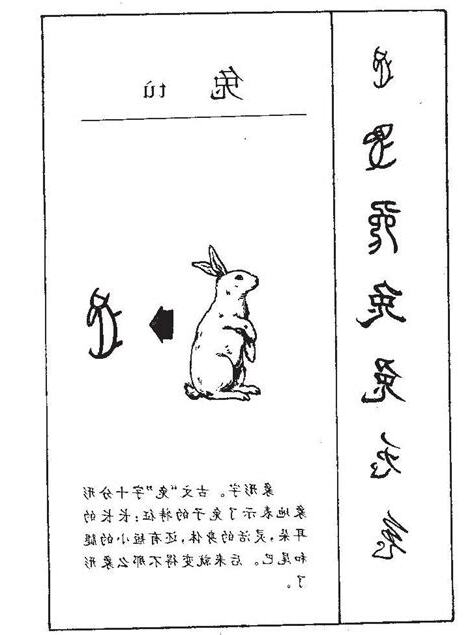 兔 tù
象形字。古文“兔”字十分形
象地表示了兔子的特征：长长的
耳朵，灵活的身体，还有短小的腿
和尾巴。后来就变得不那么象形
了。
兔
兔